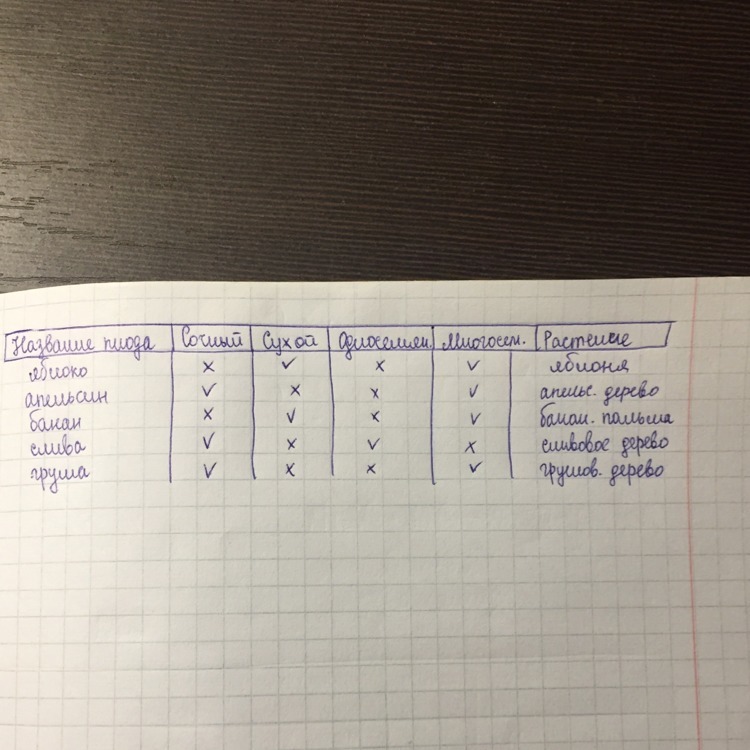 Название плода Сочный Сухой Односемян. Многосем. Растение
яблоко x ✓ x ✓ яблоня
апельсин ✓ x x ✓ апельс. дерево
банан x ✓ x ✓ банан. пальма
слива ✓ x ✓ x сливовое дерево
груша ✓ x x ✓ грушов. дерево